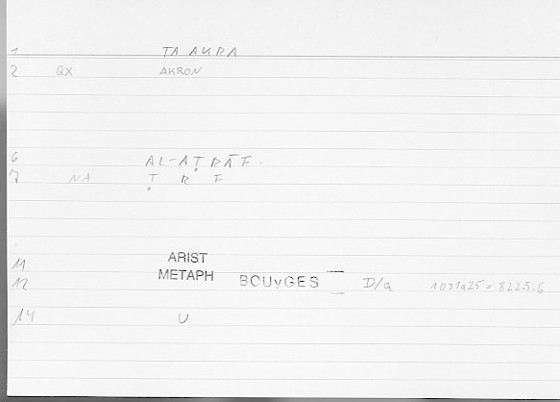 1 TA AKRA
2 QX AKRON
6 AL-AṬRĀF.
7 NA Ṭ R F
11 ARIST
12 METAPH BOUYGES D/a 1031a25 = 822.5.6
14 U